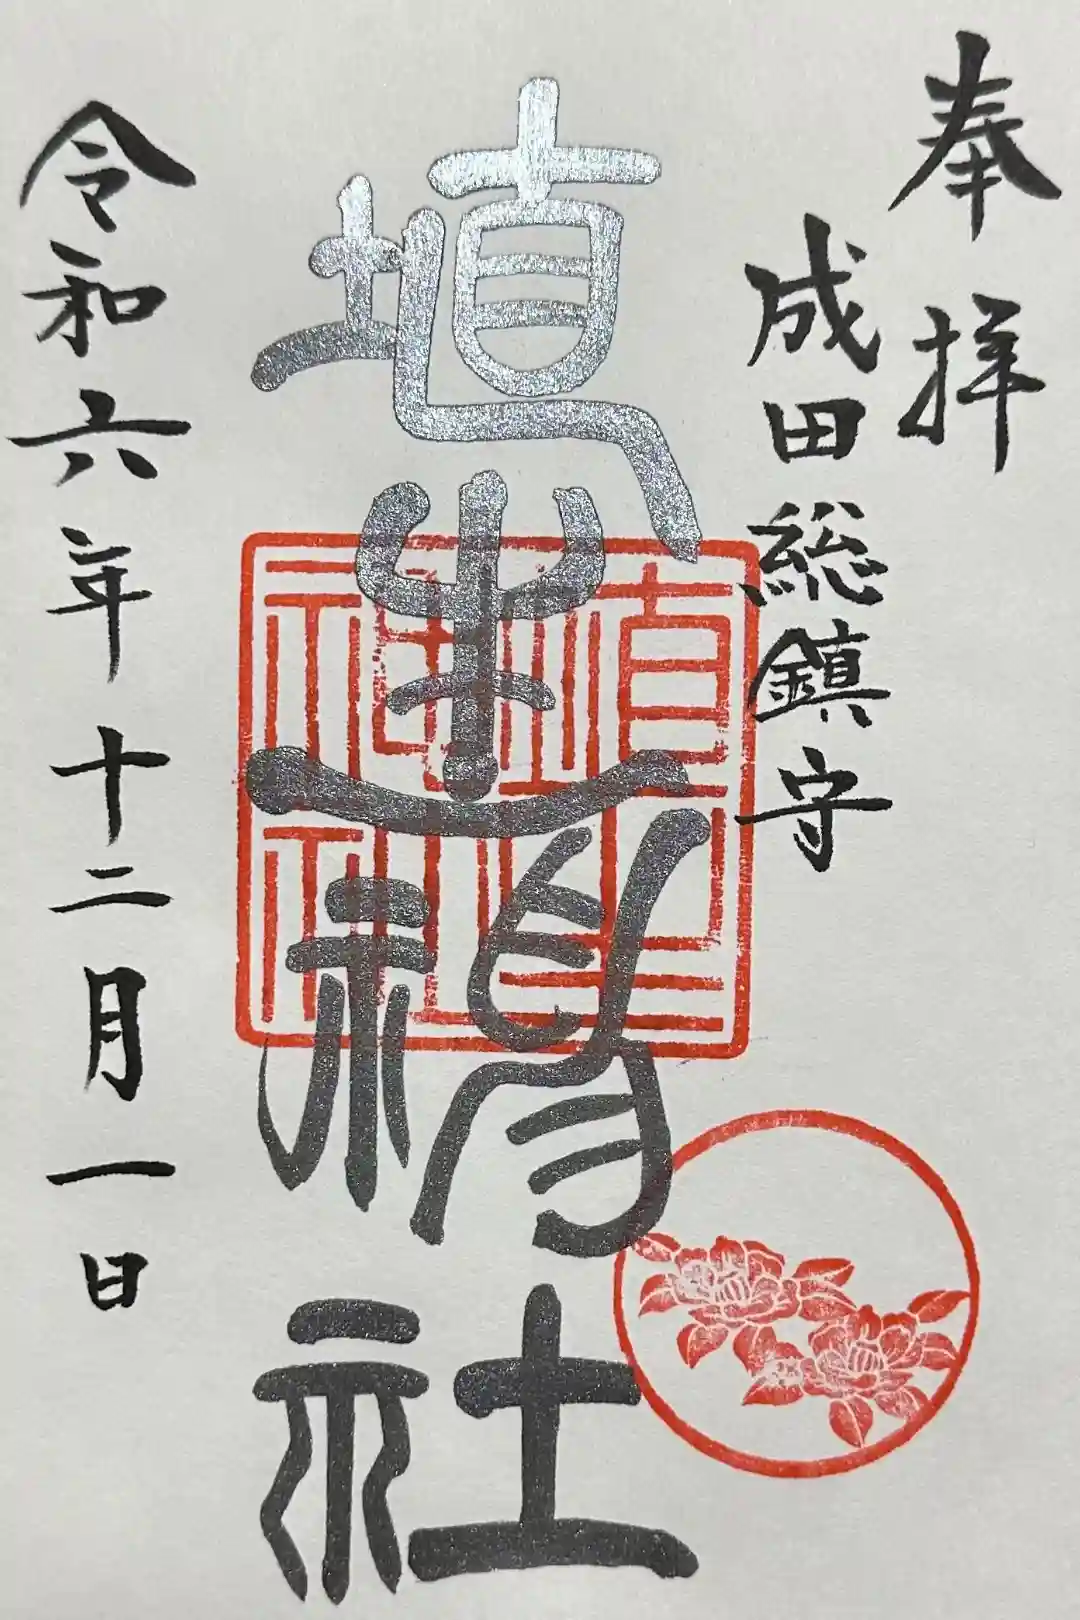 奉拝
成田総鎮守
埴生神社
令和六年十二月一日